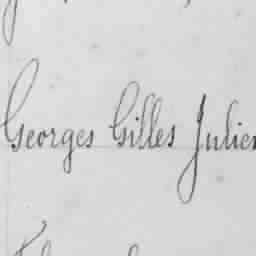 Georges Gilles Julien